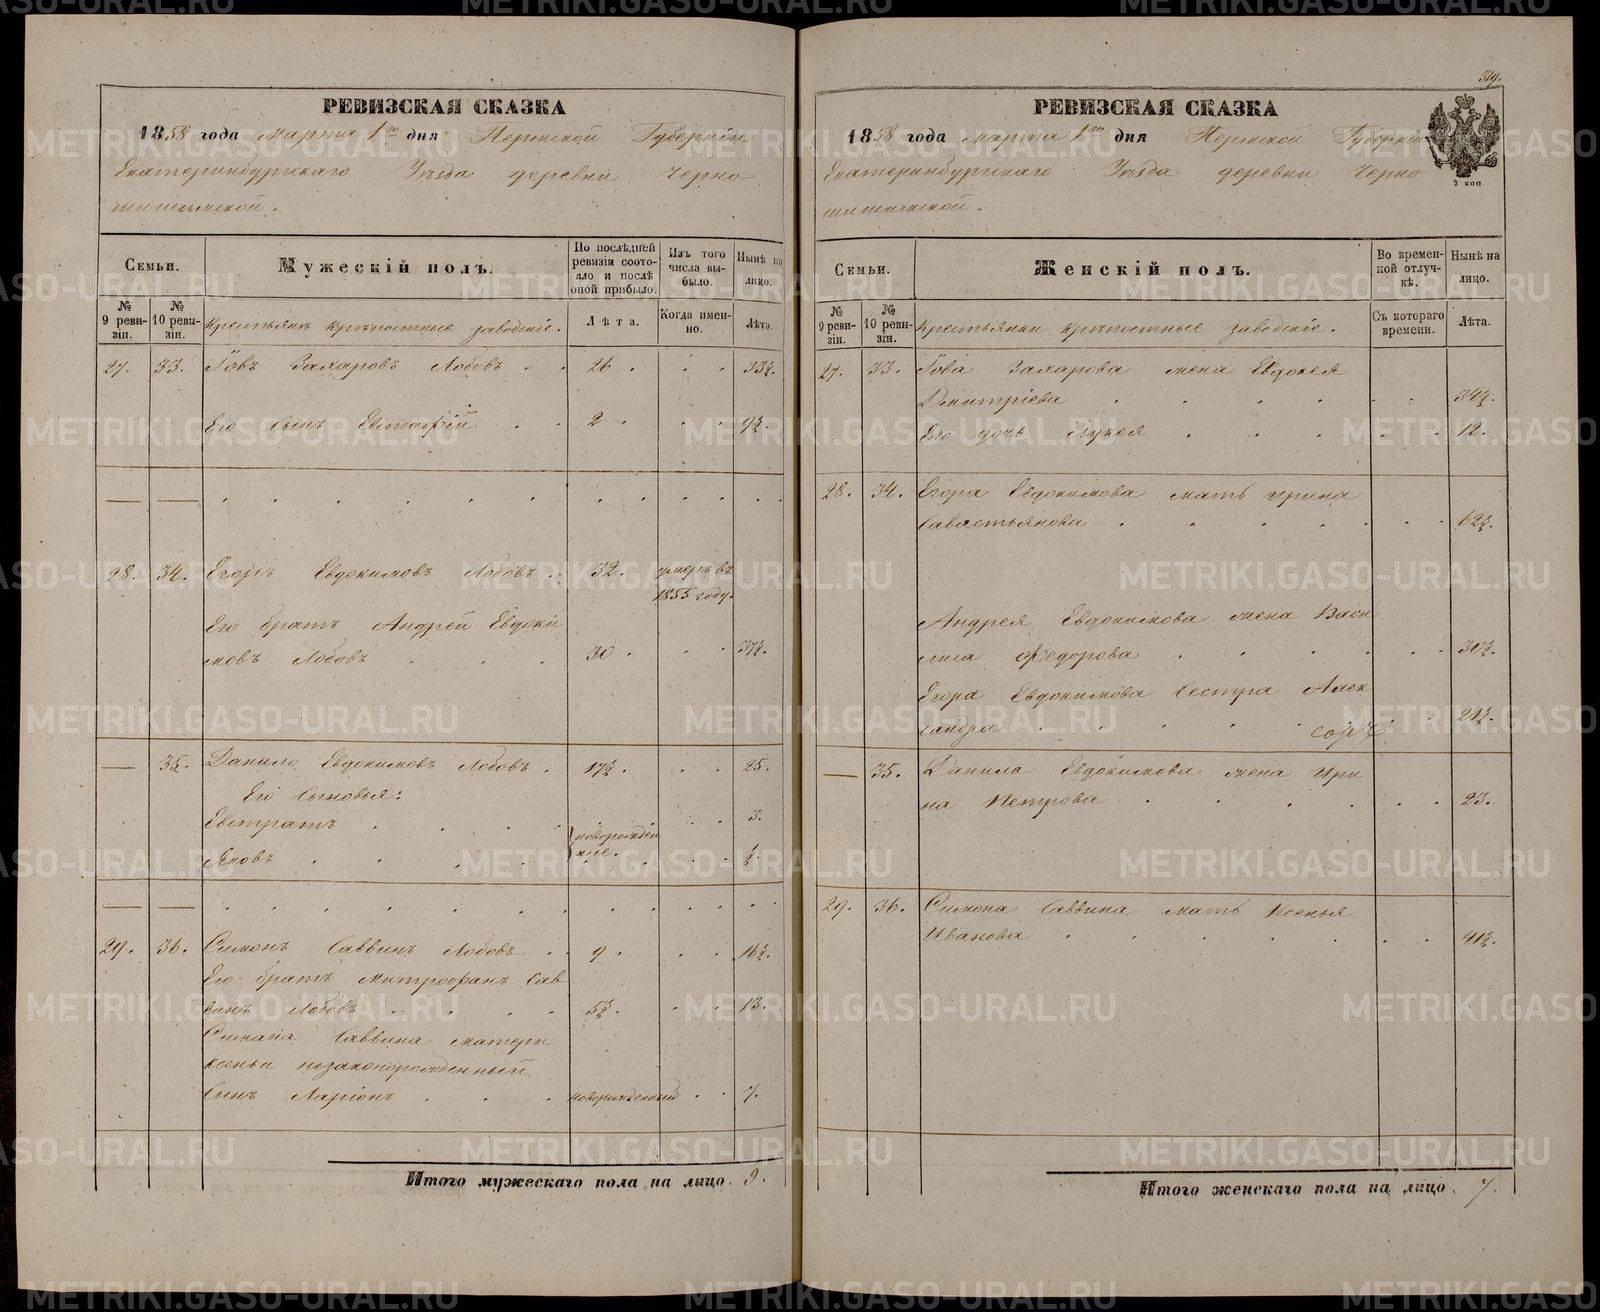 РЕВИЗСКАЯ СКАЗКА
1858 года марта 1го дня Пермской Губерніи
Екатеринбургскаго Уѣзда деревни Черно
шишимской.
Семьи.
Мужескій полъ.
По послѣдней ревизіи состояло и послѣ оной прибыло.
Изъ того числа выбыло.
Нынѣ на лицо.
№ 9 ревизіи.
№ 10 ревизіи.
Крестьянъ крѣпостные заводскіе.
Лѣта.
Когда именно.
Лѣта.
27. 33. Іовъ Захаровъ Лобовъ 26 33½.
Его сынъ Евстафій 2 9½.
28. 34. Егоръ Евдокимовъ Лобовъ 32. умеръ въ
1855 году.
Его братъ Андрей Евдоки
мовъ Лобовъ 30 37½.
35. Данило Евдокимовъ Лобовъ 17½. 25.
Его сыновья:
Евстратъ новорожден 3.
Яковъ ные. ½.
29. 36. Симонъ Саввинъ Лобовъ 9 16½.
Его братъ Митрофанъ Сав
винъ Лобовъ 5½. 13.
Симона Саввина матери
Ксеньи незаконорожденный
сынъ Ларіонъ новорожденный 7.
Итого мужескаго пола на лицо 9.
319.
РЕВИЗСКАЯ СКАЗКА
1858 года марта 1го дня Пермской Губерніи
Екатеринбургскаго Уѣзда деревни Черно
шишимской.
2 коп
Семьи.
Женскій полъ.
Во временной отлучкѣ.
Нынѣ на лицо.
№ 9 ревизіи.
№ 10 ревизіи.
Крестьянки крѣпостные заводскіе.
Съ котораго времени.
Лѣта.
27. 33. Іова Захарова жена Евдокея
Дмитріева 34½.
Его дочь Лукея 12.
28. 34. Егора Евдокимова мать Ирина
Савастьянова 62½.
Андрея Евдокимова жена Васи
лиса Федорова 30½.
Егора Евдокимова сестра Алек
сандра 21½.
35. Данила Евдокимова жена Ири
на Петрова 23.
29. 36. Симона Саввина мать Ксенья
Иванова 41½.
Итого женскаго пола на лицо 7.
METRIKI.GASO-URAL.RU